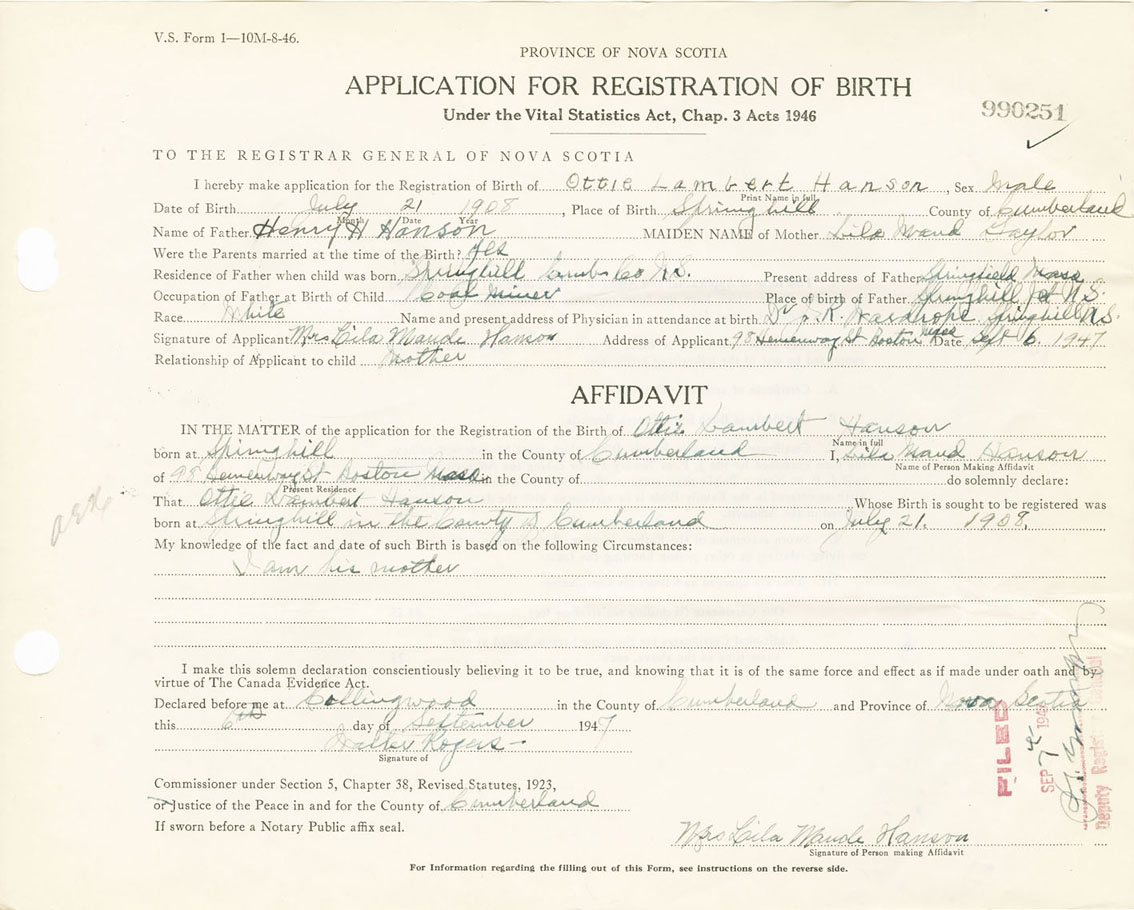 V.S. Form 1—10M-8-46.
PROVINCE OF NOVA SCOTIA
APPLICATION FOR REGISTRATION OF BIRTH
Under the Vital Statistics Act, Chap. 3 Acts 1946
990251
TO THE REGISTRAR GENERAL OF NOVA SCOTIA
I hereby make application for the Registration of Birth of Ottie Lambert Hanson, Sex Male
Print Name in full
Date of Birth July 21 1908, Place of Birth Springhill County of Cumberland
Month Date Year
Name of Father Henry H Hanson MAIDEN NAME of Mother Lila Maud Taylor
Were the Parents married at the time of the Birth? Yes
Residence of Father when child was born Springhill Cumb. Co N.S. Present address of Father Springfield Mass
Occupation of Father at Birth of Child Coal Miner Place of birth of Father Springhill Jct N.S.
Race White Name and present address of Physician in attendance at birth Dr Wardrope Springhill N.S.
Signature of Applicant Mrs Lila Maude Hanson Address of Applicant 98 Hemenway St Boston Mass Date Sept 6. 1947
Relationship of Applicant to child Mother
AFFIDAVIT
IN THE MATTER of the application for the Registration of the Birth of Ottie Lambert Hanson
Name in full
born at Springhill in the County of Cumberland I, Lila Maud Hanson
Name of Person Making Affidavit
of 98 Hemenway St Boston Mass in the County of do solemnly declare:
Present Residence
That Ottie Lambert Hanson Whose Birth is sought to be registered was
born at Springhill in the County of Cumberland on July 21. 1908.
My knowledge of the fact and date of such Birth is based on the following Circumstances:
I am his mother
I make this solemn declaration conscientiously believing it to be true, and knowing that it is of the same force and effect as if made under oath and by
virtue of The Canada Evidence Act.
Declared before me at Collingwood in the County of Cumberland and Province of Nova Scotia
this 6th day of September 1947
Walter Rogers
Signature of
Commissioner under Section 5, Chapter 38, Revised Statutes, 1923,
or Justice of the Peace in and for the County of Cumberland
If sworn before a Notary Public affix seal.
Mrs Lila Maude Hanson
Signature of Person making Affidavit
For Information regarding the filling out of this Form, see instructions on the reverse side.
FILED
SEP
Deputy Registrar General